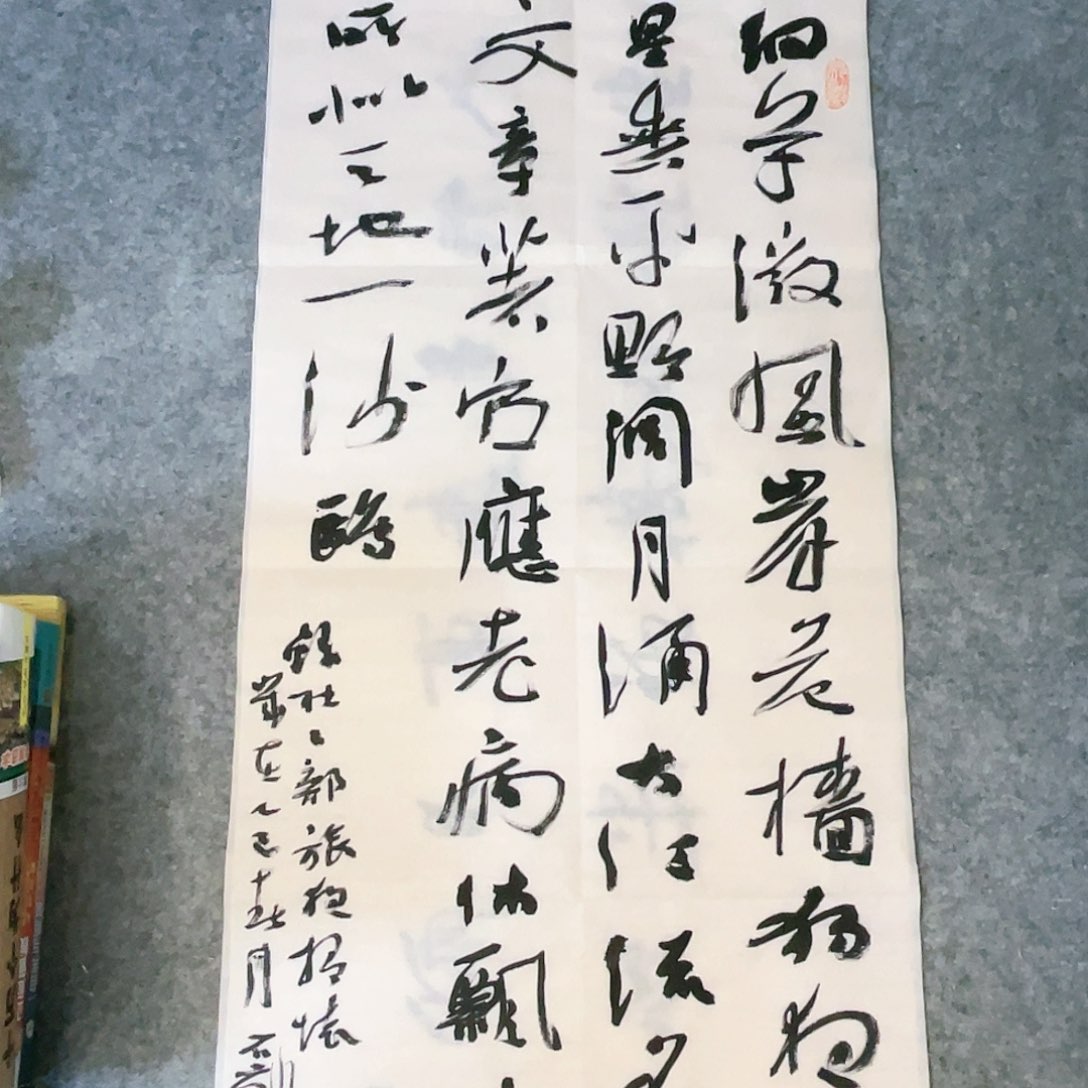 細草微風岸危檣獨夜
星垂平野濶月涌大江流名
文章著官應老病休飄
所似天地一沙鷗
錄杜工部旅夜抒懷
歲在乙巳十月